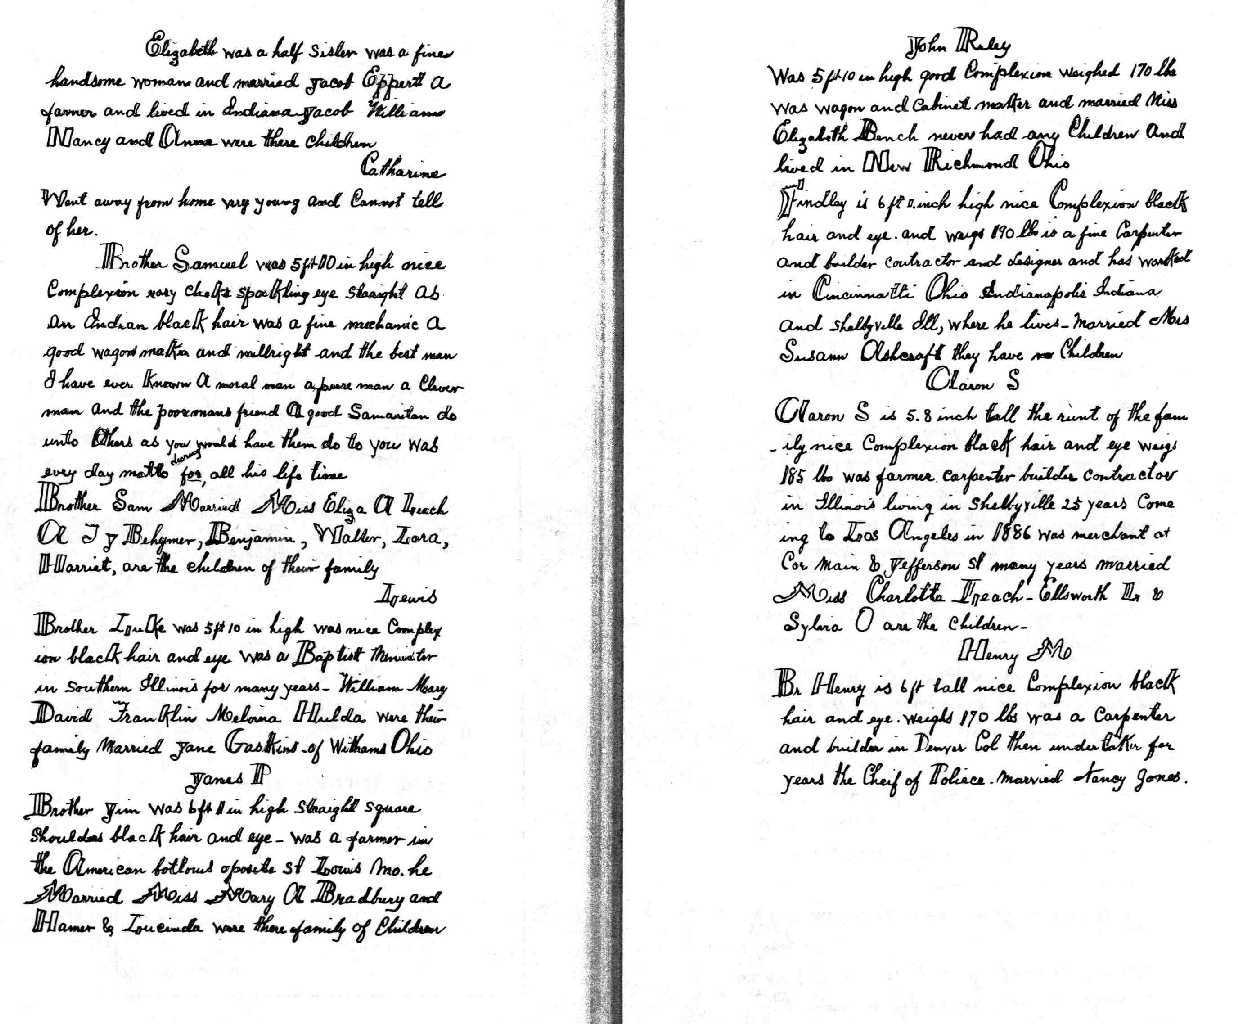 Elizabeth was a half Sister was a fine
handsome woman and married Jacob Eppert a
farmer and lived in Indiana Jacob William
Nancy and Anna were there children
Catharine
Went away from home very young and Cannot tell
of her.
Brother Samuel was 5 ft 10 in high nice
Complexion rosy cheeks sparkling eye straight as
an Indian black hair was a fine mechanic a
good wagon maker and millright and the best man
I have ever known a moral man a pure man a Clever
man and the poormans friend a good Samaritan do
unto others as you would have them do to you was
every day motto for during all his life time
Brother Sam Married Miss Eliza A Leach
A I J Behymer, Benjamin, Walter, Lora,
Harriet, are the children of their family
Lewis
Brother Louke was 5 ft 10 in high was nice Complex
ion black hair and eye was a Baptist Minister
in southern Illinois for many years - William Mary
David Franklin Melvina Hulda were their
family Married Jane Gaskins of Withams Ohio
James P
Brother Jim was 6 ft 11 in high straight square
shoulders black hair and eye - was a farmer in
the American bottous oposite St Louis Mo. he
Married Miss Mary A Bradbury and
Hamer & Loucinda were there family of Children
John Raley
Was 5 ft 10 in high good Complexion weighed 170 lbs
was wagon and Cabinet maker and married Miss
Elizabeth Bench never had any Children and
lived in New Richmond Ohio
Findley is 6 ft 0 inch high nice Complexion black
hair and eye. and weigs 190 lbs is a fine Carpenter
and builder contractor and designer and has worked
in Cincinnatti Ohio Indianapolis Indiana
and Shelbyville Ill, where he lives - Married Miss
Susann Ashcraft they have no Children
Aaron S
Aaron S is 5.8 inch tall the runt of the fam
- ily nice Complexion black hair and eye weigs
185 lbs was farmer carpenter builder contractor
in Illinois living in Shelbyville 25 years Come
ing to Loas Angeles in 1886 was merchant at
Cor Main & Jefferson St many years married
Miss Charlotta Leach - Ellsworth L &
Sylvia O are the Children -
Henry M
Br Henry is 6 ft tall nice Complexion black
hair and eye. weighs 170 lbs was a Carpenter
and builder in Denver Col then undertaker for
years the Cheif of Poliece. married Nancy Jones.